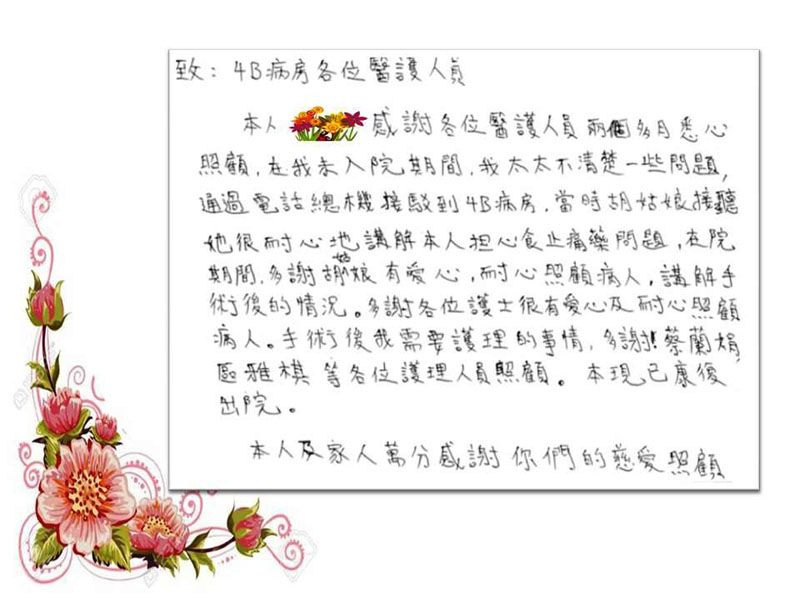 致：4B病房各位醫護人員
本人 感謝各位醫護人員兩個多月悉心
照顧，在我未入院期間，我太太不清楚一些問題，
通過電話總機接駁到4B病房，當時胡姑娘接聽
她很耐心地講解本人担心食止痛藥問題，在院
期間，多謝胡姑娘有愛心，耐心照顧病人，講解手
術後的情況。多謝各位護士很有愛心及耐心照顧
病人。手術後我需要護理的事情，多謝！蔡蘭娟，
區雅棋等各位護理人員照顧。本現已康後
出院。
本人及家人萬分感謝你們的慈愛照顧